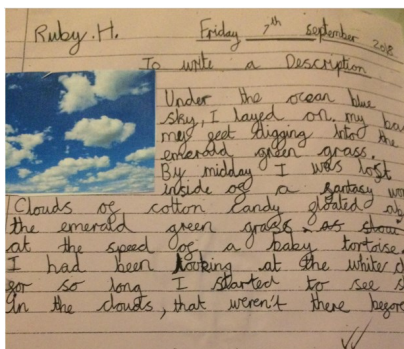 Ruby.H. Friday 7th September 2018
To write a Description
Under the ocean blue
sky, I layed on my
my feet digging into the
emerald green grass.
By midday I was lost
inside of a fantasy
Clouds of cotton candy floated
the emerald green grass. as
at the speed of a baby tortoise.
I had been looking at the white
for so long I started to see
in the clouds, that weren't there before